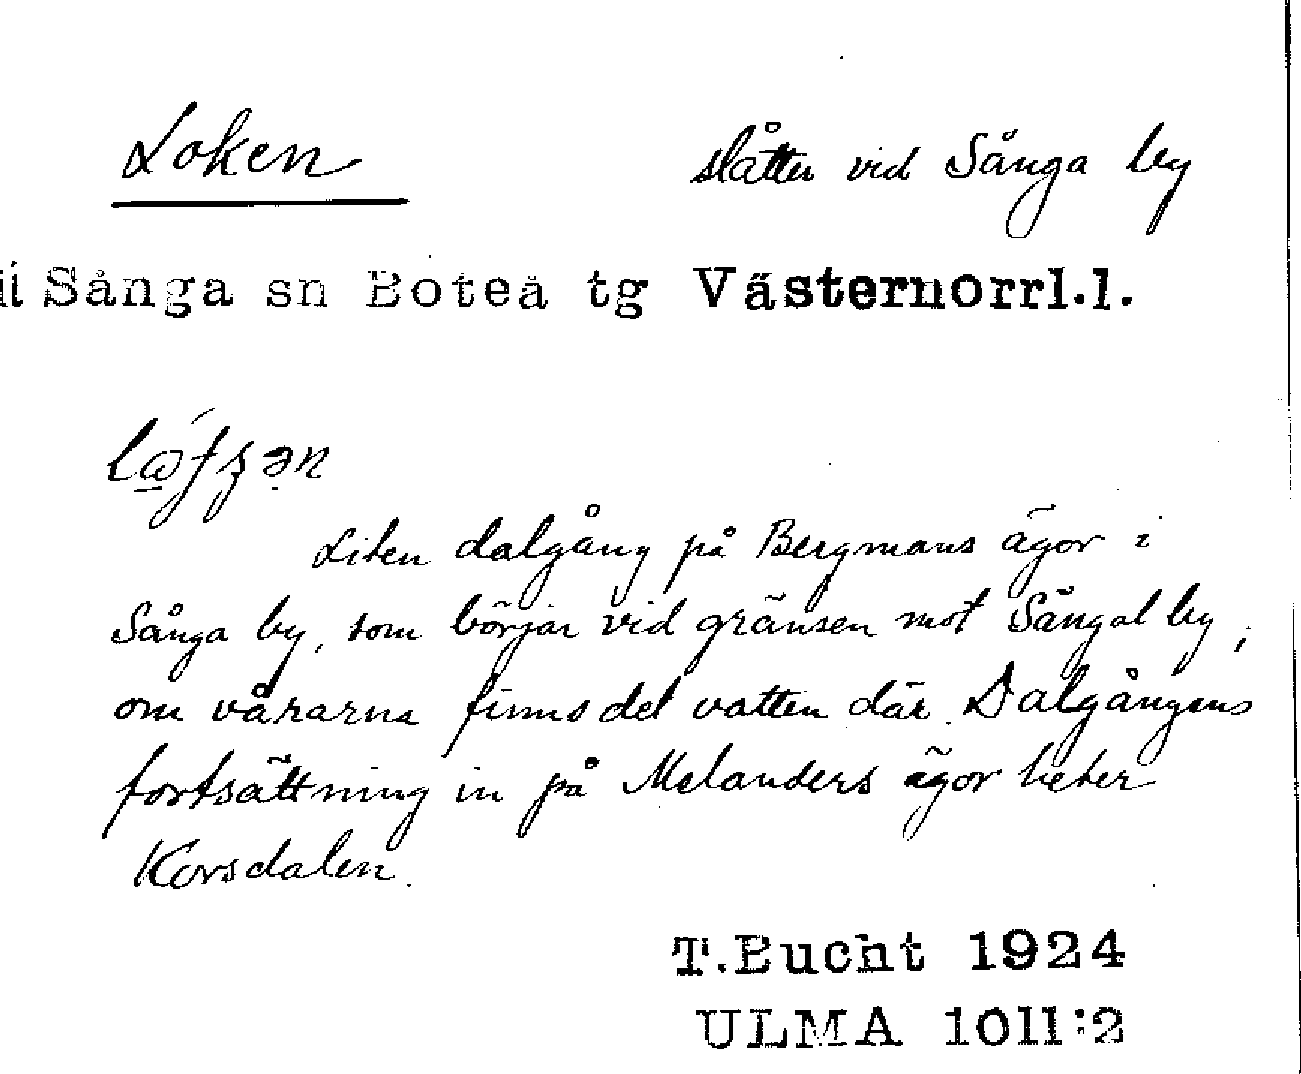 Loken slåtter vid Sånga by
i Sånga sn Boteå tg Västernorrl.l.
Liten dalgång på Bergmans ägor i
Sånga by, som börjar vid gränsen mot Sångal by;
om vårarna finns det vatten där. Dalgångens
fortsättning in på Melanders ägor heter
Korsdalen.
T.Bucht 1924
ULMA 1011:2